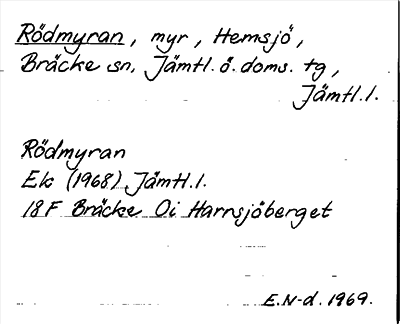 Rödmyran, myr, Hemsjö,
Bräcke sn, Jämtl. ö. doms. tg,
Jämtl. l.
Rödmyran
Ek (1968) Jämtl. l.
18F Bräcke Oi Harrsjöberget
E.N-d. 1969.